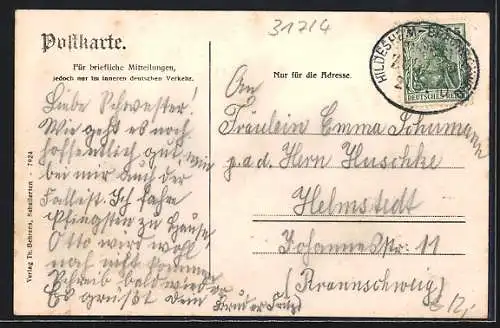 31714
Postkarte.
Für briefliche Mitteilungen,
jedoch nur im inneren deutschen Verkehr.
Nur für die Adresse.
HILDESHEIM-
DEUTSCHES
Liebe Schwester!
Wie geht es noch
hoffentlich gut, wie
bei mir auch der
Fall ist. Ich fahre
Pfingsten zu Hause
Otto wird wohl
noch nicht kommen
Schreib bald wieder
Es grüßt dein
Bruder Fritz
An
Fräulein Emma Schumann
p.a.d. Herrn Huschke
Helmstedt
Johannesstr. 11
(Braunschweig)
Verlag Th. Behrens, Salzdetfurth 7824